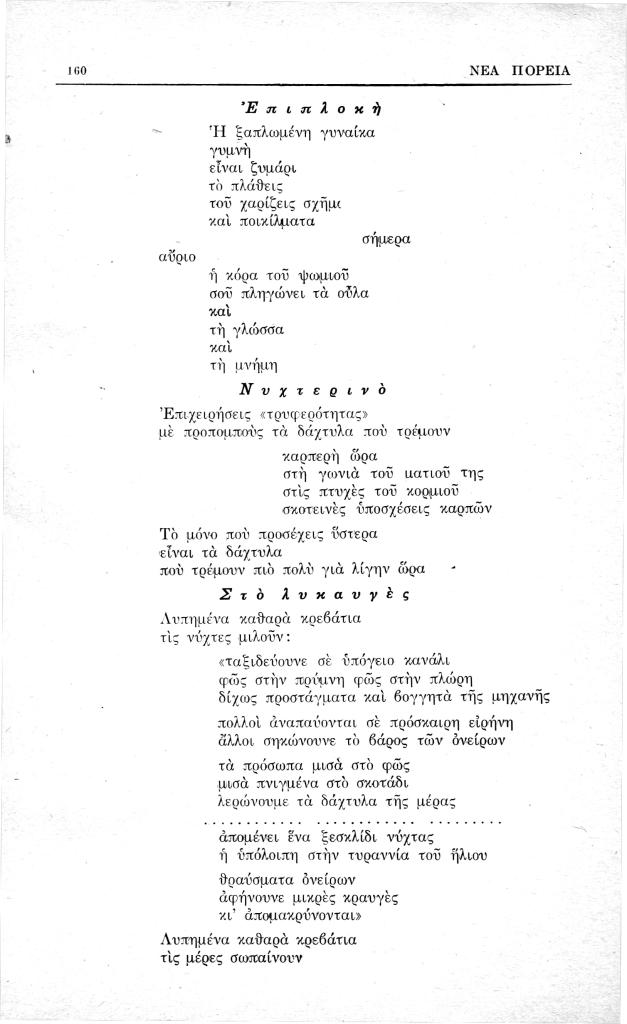 160
ΝΕΑ ΠΟΡΕΙΑ
Ἐπιπλοκὴ
Ἡ ξαπλωμένη γυναίκα
γυμνὴ
εἶναι ζυμάρι
τὸ πλάθεις
τοῦ χαρίζεις σχῆμα
καὶ ποικίλματα
σήμερα
αὔριο
ἡ κόρα τοῦ ψωμιοῦ
σοῦ πληγώνει τὰ οὖλα
καὶ
τὴ γλώσσα
καὶ
τὴ μνήμη
Νυχτερινὸ
Ἐπιχειρήσεις «τρυφερότητας»
μὲ προπομποὺς τὰ δάχτυλα ποὺ τρέμουν
καρπερὴ ὥρα
στὴ γωνιὰ τοῦ ματιοῦ της
στὶς πτυχὲς τοῦ κορμιοῦ
σκοτεινὲς ὑποσχέσεις καρπῶν
Τὸ μόνο ποὺ προσέχεις ὕστερα
εἶναι τὰ δάχτυλα
ποὺ τρέμουν πιὸ πολὺ γιὰ λίγην ὥρα
Στὸ λυκαυγὲς
Λυπημένα καθαρὰ κρεβάτια
τὶς νύχτες μιλοῦν:
«ταξιδεύουνε σὲ ὑπόγειο κανάλι
φῶς στὴν πρύμνη φῶς στὴν πλώρη
δίχως προστάγματα καὶ βογγητὰ τῆς μηχανῆς
πολλοὶ ἀναπαύονται σὲ πρόσκαιρη εἰρήνη
ἄλλοι σηκώνουνε τὸ βάρος τῶν ὀνείρων
τὰ πρόσωπα μισὰ στὸ φῶς
μισὰ πνιγμένα στὸ σκοτάδι
λερώνουμε τὰ δάχτυλα τῆς μέρας
. . . . . . . . . . . . . . . . . . . . . . . . . . . . . .
ἀπομένει ἕνα ξεσκλίδι νύχτας
ἡ ὑπόλοιπη στὴν τυραννία τοῦ ἥλιου
θραύσματα ὀνείρων
ἀφήνουνε μικρὲς κραυγὲς
κι' ἀπομακρύνονται»
Λυπημένα καθαρὰ κρεβάτια
τὶς μέρες σωπαίνουν